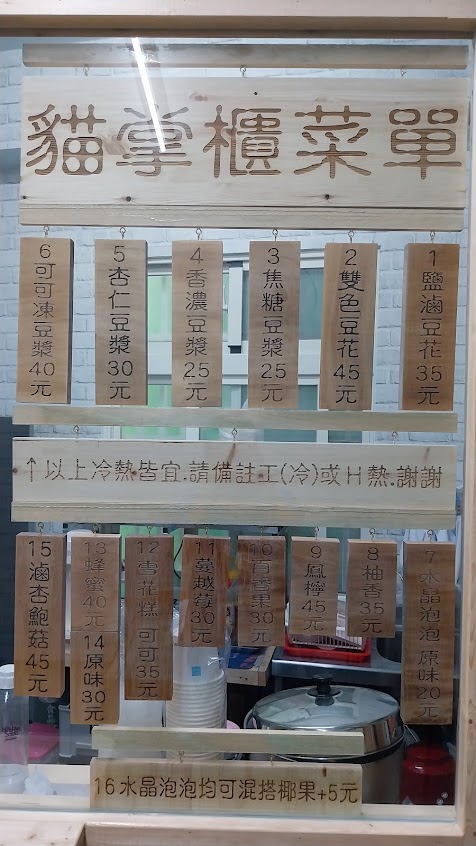 貓掌櫃菜單
1鹽滷豆花35元
2雙色豆花45元
3焦糖豆漿25元
4香濃豆漿25元
5杏仁豆漿30元
6可可凍豆漿40元
↑以上冷熱皆宜.請備註工(冷)或H熱.謝謝
7水晶泡泡 原味20元
8柚香35元
9鳳檸45元
10百香果30元
11蔓越莓30元
12雪花糕 可可35元
13蜂蜜40元
14原味30元
15滷杏鮑菇45元
16水晶泡泡均可混搭椰果+5元